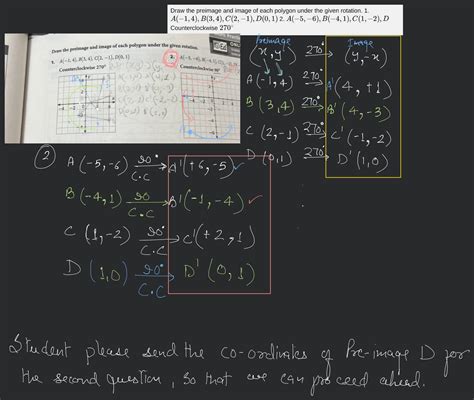 Draw the preimage and image of each polygon under the given rotation. 1.
A(−1,4), B(3,4), C(2,−1), D(0,1) 2. A(−5,−6), B(−4,1), C(1,−2), D
Counterclockwise 270°
Draw the preimage and image of each polygon under the given rotation.
1. A(−1, 4), B(3, 4), C(2, −1), D(0, 1)
Counterclockwise 270°
2. A(−5, −6), B(−4, 1), C(1, −2)
Counterclockwise 90°
Preimage Image
(x, y) 270° (y, -x)
A(-1,4) 270° A'(4, +1)
B(3,4) 270° B'(4, -3)
C(2,-1) 270° C'(-1,-2)
D(0,1) 270° D'(1,0)
2
A(-5,-6) 90° C.C A'(+6,-5)
B(-4,1) 90 C.C B'(-1,-4)
C(1,-2) 90° C.C C'(+2,1)
D(1,0) 90° C.C D'(0,1)
Student please send the co-ordinates of Pre-image D for
the second question, so that we can proceed ahead.